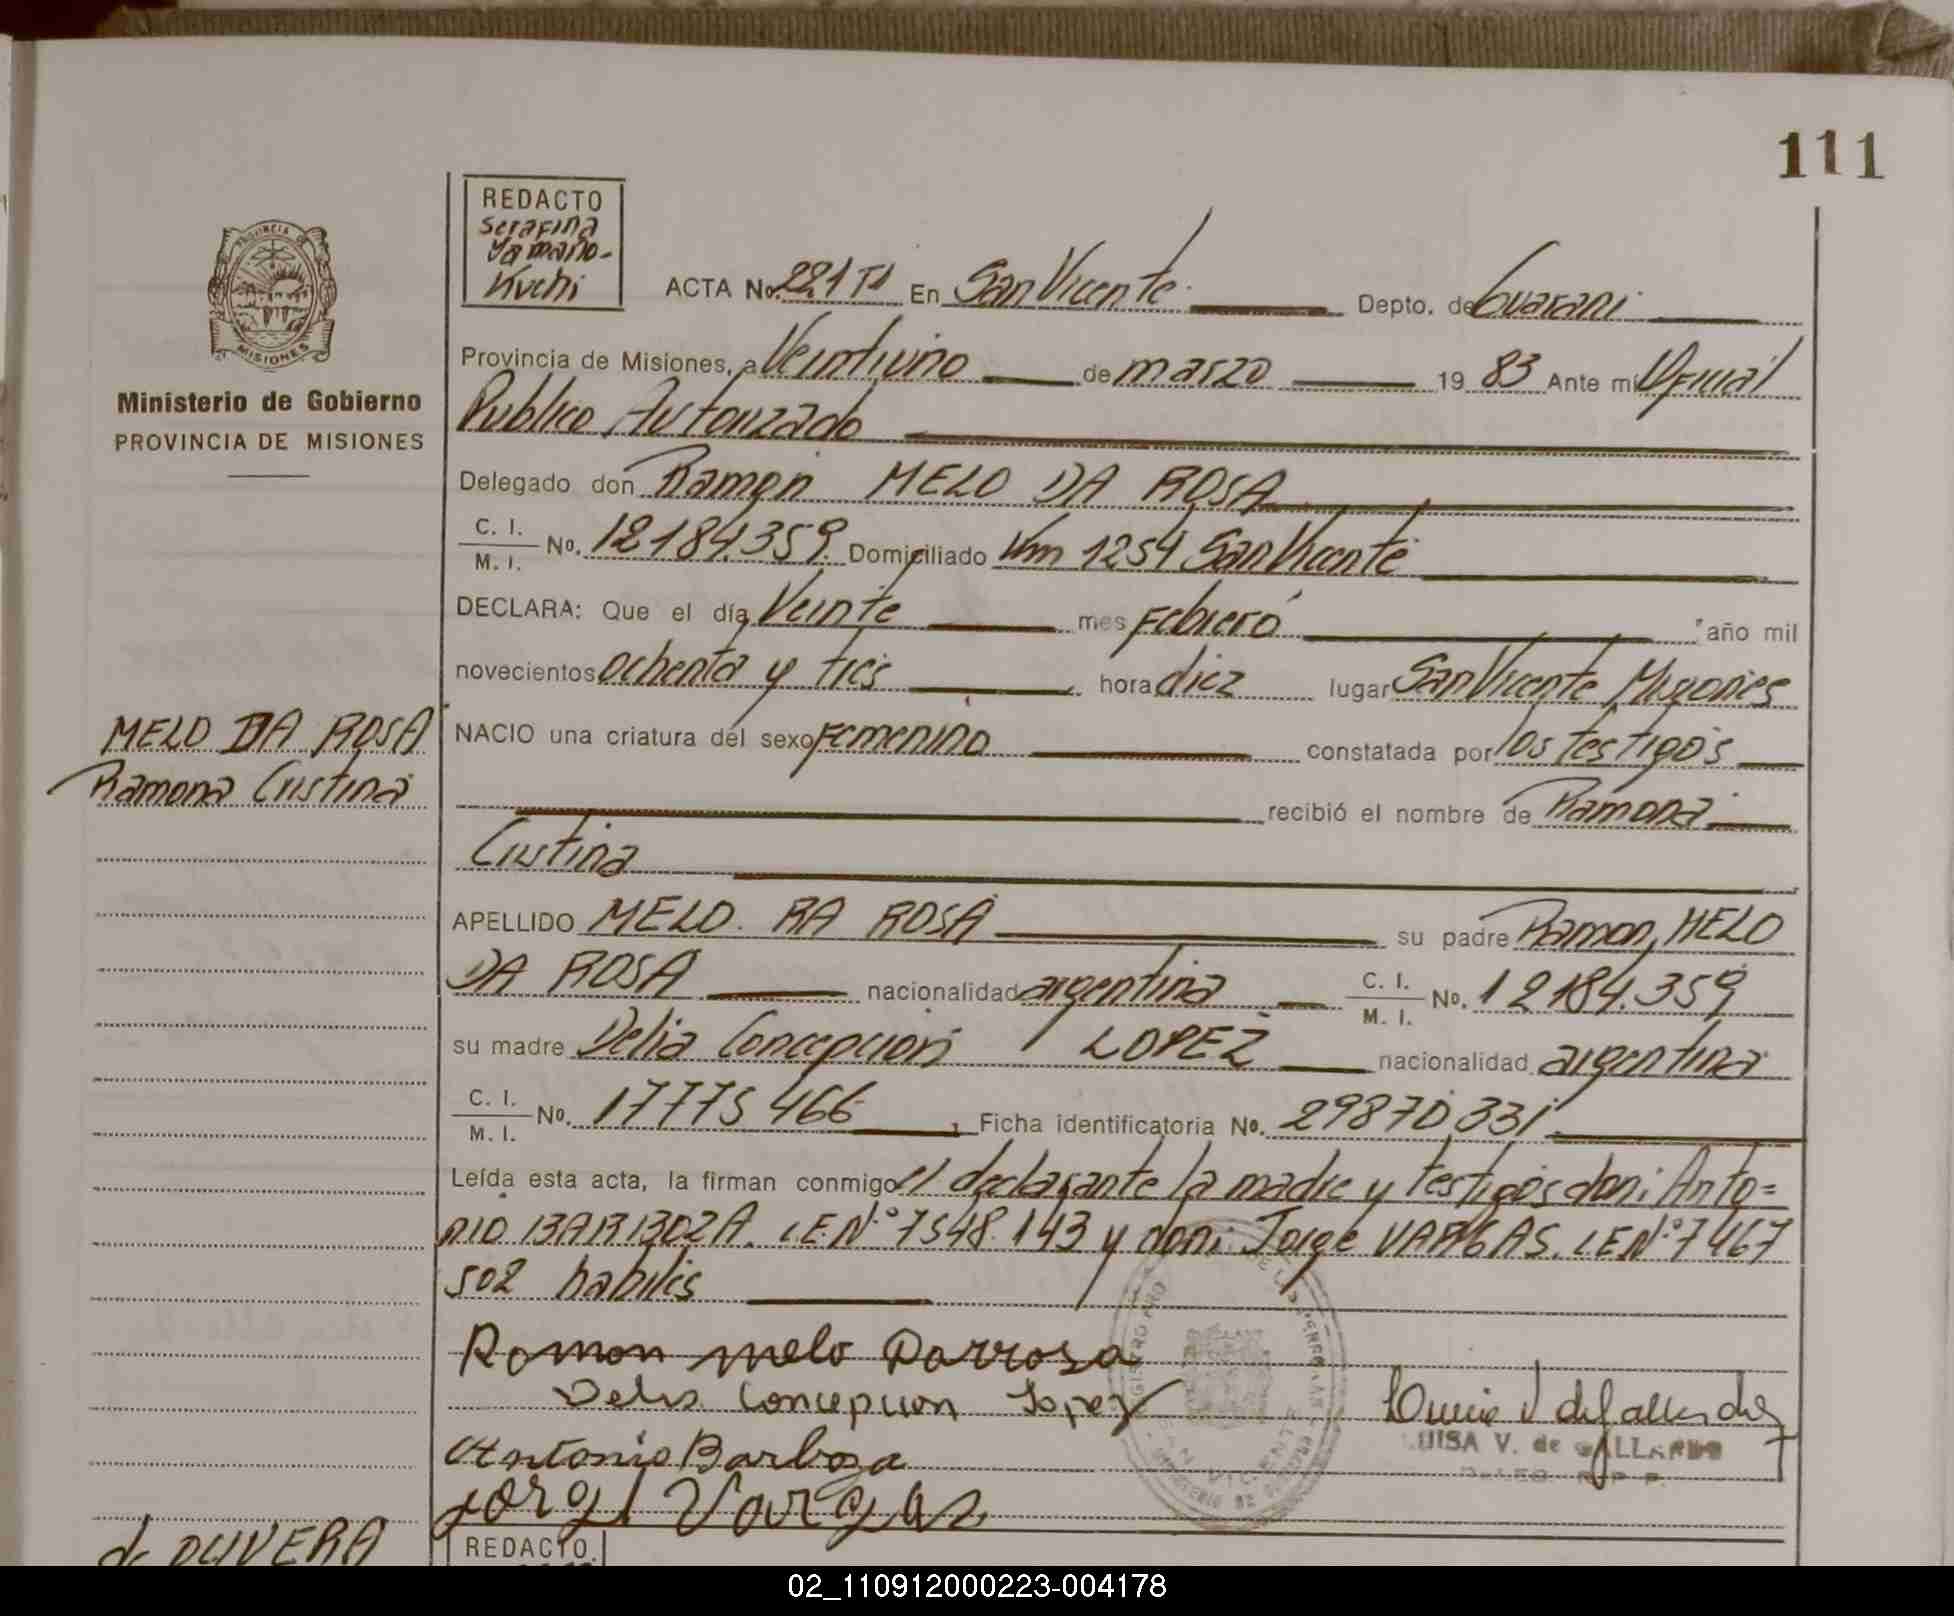 111
REDACTO
Serafina
Yamaño-
Kuchi
PROVINCIA DE
MISIONES
Ministerio de Gobierno
PROVINCIA DE MISIONES
ACTA No. 221 TI En San Vicente Depto. de Guarani
Provincia de Misiones, a Veintiuno de marzo 19 83 Ante mi Oficial
Publico Autorizado
Delegado don Ramon MELO DA ROSA
C. I. / M. I. No. 12184.359. Domiciliado Km 1254 San Vicente
DECLARA: Que el día Veinte mes Febrero año mil
novecientos ochenta y tres hora diez lugar San Vicente Misiones
MELO DA ROSA
Ramona Cristina
NACIO una criatura del sexo Femenino constatada por los testigos
recibió el nombre de Ramona
Cristina
APELLIDO MELO. RA ROSA su padre Ramon, MELO
DA ROSA nacionalidad argentina C. I. / M. I. No. 12184.359
su madre Delia Concepcion LOPEZ nacionalidad argentina
C. I. / M. I. No. 17775466 , Ficha identificatoria No. 29870331
Leída esta acta, la firman conmigo el declarante la madre y testigos don: Anto=
nio BARBOZA. L.E.N.º 7548.143 y don: Jorge VARGAS. L.E.N.º 7467
502 habiles
Ramon melo Darrosa
Delia Concepcion Lopez
Antonio Barboza
Jorge Vargas
LUISA V. de GALLARDO
SAN VICENTE
de OLIVERA
REDACTO
02_110912000223-004178